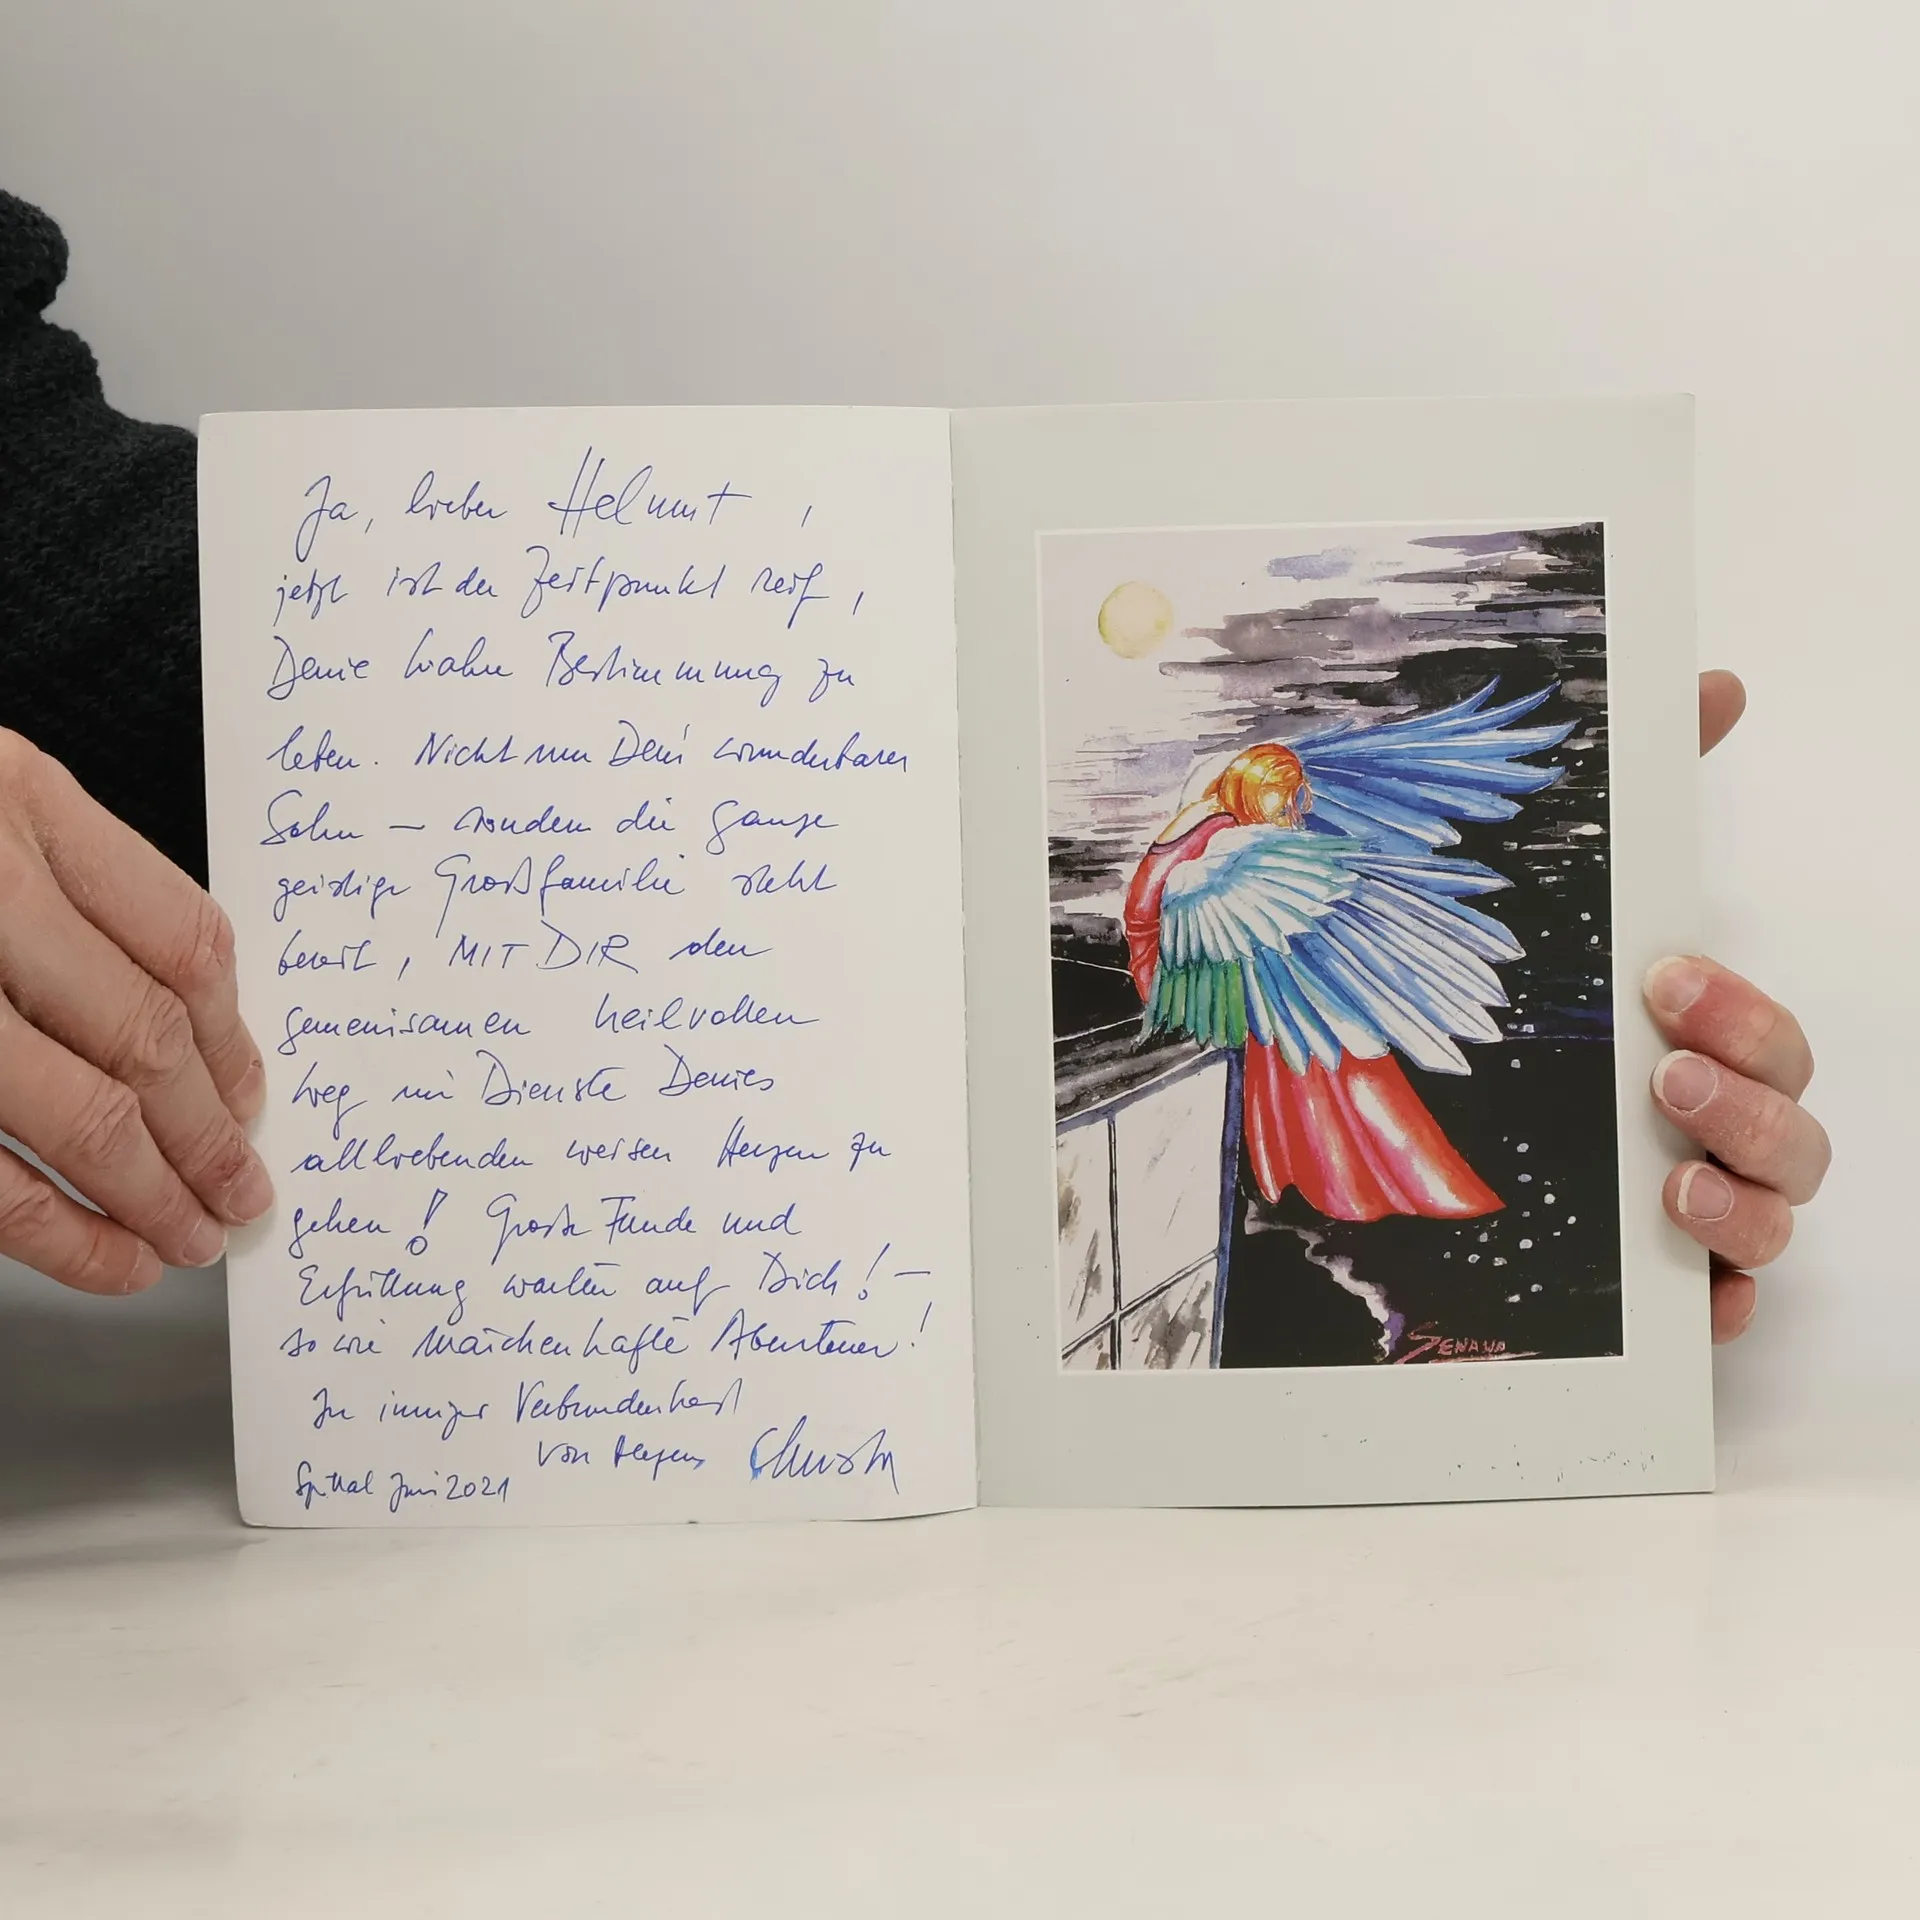 Ja, lieber Helmut,
jetzt ist der Zeitpunkt reif,
Deine wahre Bestimmung zu
leben. Nicht nur Dein wunderbarer
Sohn — sondern die ganze
geistige Großfamilie steht
bereit, MIT DIR den
gemeinsamen heilvollen
Weg im Dienste Deines
allliebenden weisen Herzen zu
gehen! Große Funde und
Erfüllung warten auf Dich! —
so wie märchenhafte Abenteuer!
In inniger Verbundenheit
von Herzen Christa
Spittal Juni 2021
SENAWO